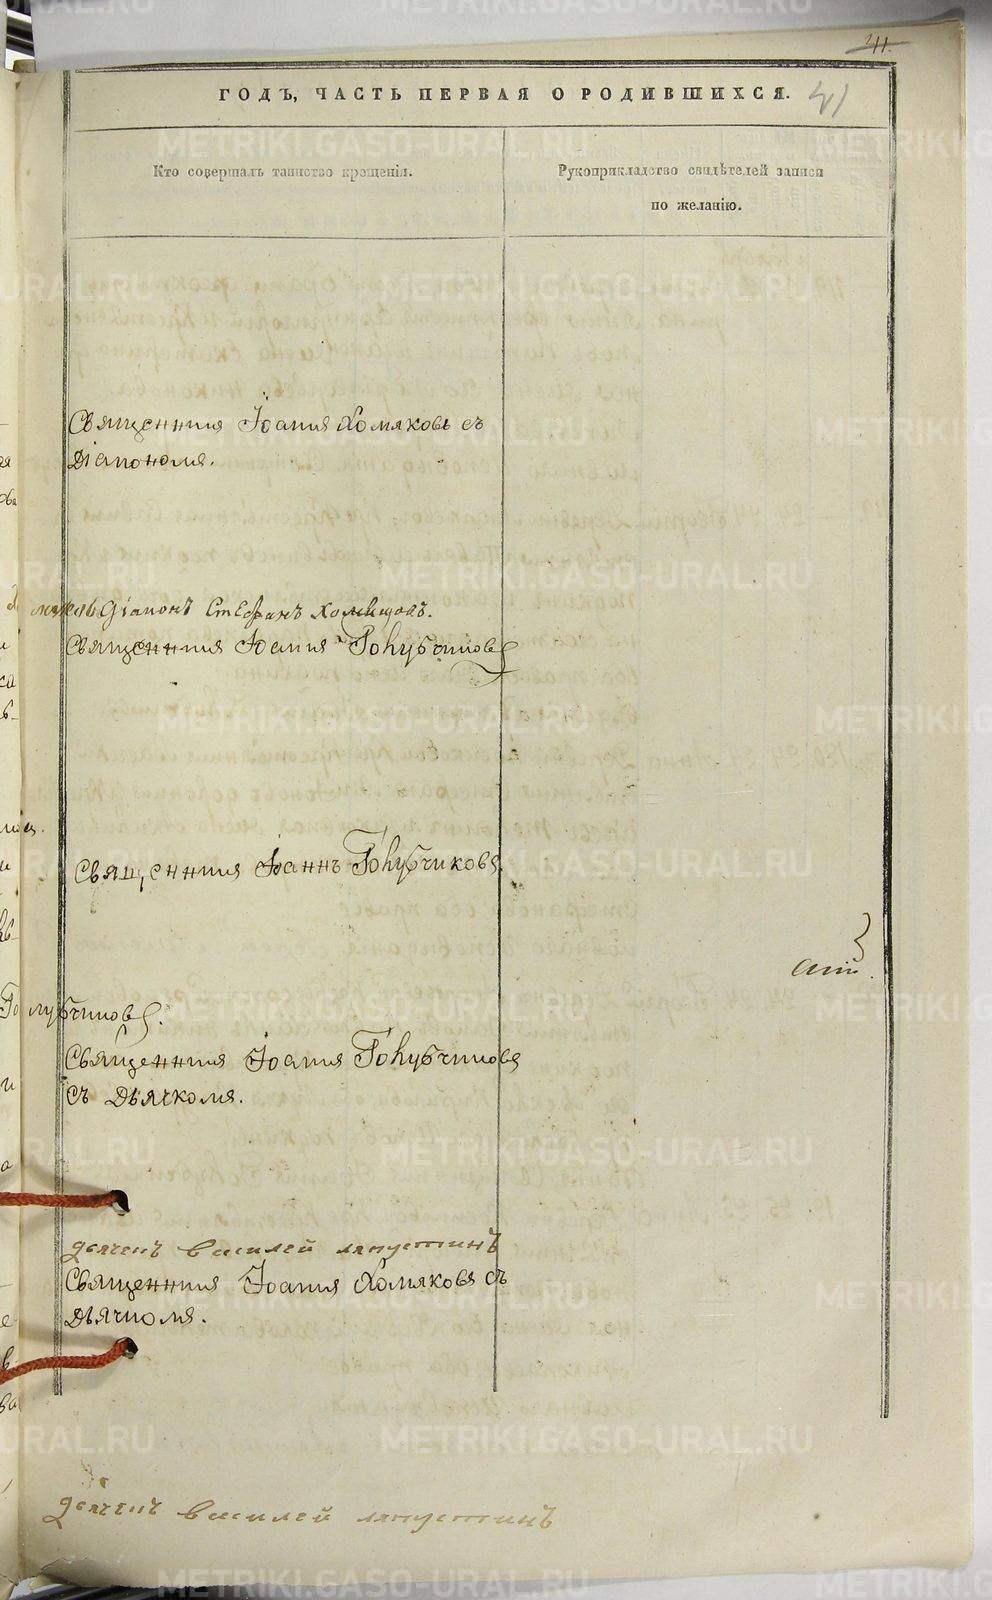 41.
ГОДЪ, ЧАСТЬ ПЕРВАЯ О РОДИВШИХСЯ.
41
Кто совершалъ таинство крещенія.
Рукоприкладство свидѣтелей записи
по желанію.
Священникъ Іоаннъ Хомяковъ съ
Діакономъ.
Діаконъ Стефанъ
Священникъ Іоаннъ Голубчиковъ
Священникъ Іоаннъ Голубчиковъ.
Голубчиковъ.
Священникъ Іоаннъ Голубчиковъ
съ Дьячкомъ.
дьячекъ василей ляпустинъ
Священникъ Іоаннъ Хомяковъ съ
Дьячкомъ.
дьячекъ василей ляпустинъ
METRIKI.GASO-URAL.RU